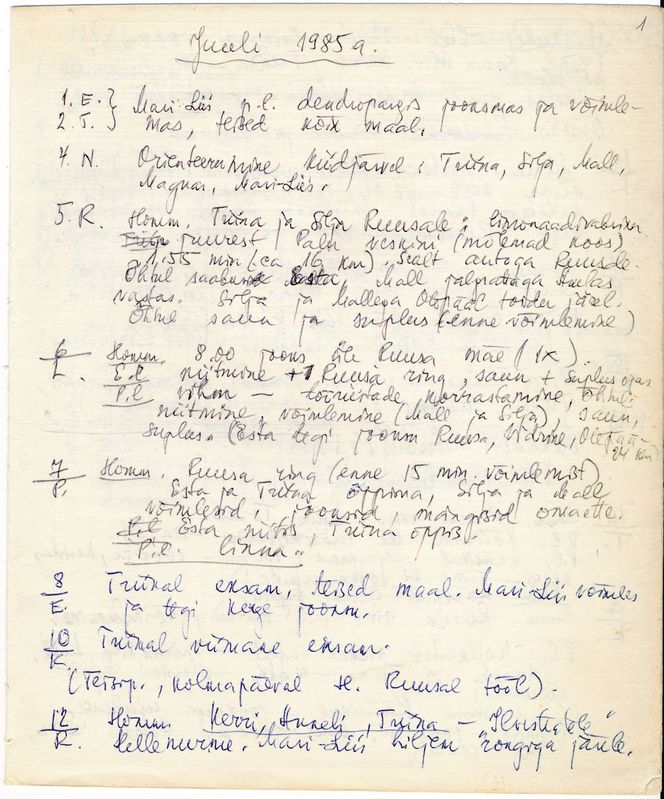 1
Juuli 1985 a.
1. E. } Mari-Liis, p.l. dendropargis jooksmas ja võimle-
2. T. } mas, teised kõik maal.
4. N. Orienteerumine Küdjärvel: Triina, Silja, Mall,
Magnar, Mari-Liis.
5. R. Homm. Triina ja Silja Ruusale: limonaadivabriku
juurest Palu veskini (mõlemad koos)
1.55 min (ca 16 km). Sealt autoga Ruusale.
Õhtul saabus Esta Mall jalgrattaga
vastas. Silja ja Mallega Otepääl toidu järel.
Õhtul saun ja suplus (enne võimlemine)
6 Homm. 8.00 jooks üle Ruusa mäe (1x).
L. E.l. niitmine + 1 Ruusa ring, saun + suplus
P.l. vihm — tööriistade korrastamine, õhtul
niitmine, võimlemine (Mall ja Silja), saun,
suplus. (Esta tegi jooksu Ruusa, Vidrike, Otepää
24 km)
7 Homm. Ruusa ring (enne 15 min. võimlemist)
P. Esta ja Triina õppima, Silja ja Mall
võimlesid, jooksid, mängisid omaette.
P.l. Esta niitis, Triina õppis.
P.l. linna.
8 Triinal eksam, teised maal. Mari-Liis võimles
E. ja tegi kerge jooksu.
10 Triinal viimane eksam.
K.
(Teisip., kolmapäeval H. Ruusal tööl).
12 Homm. Kerri, Anneli, Triina —
R. Hellenurme. Mari-Liis hiljem rongiga järele.